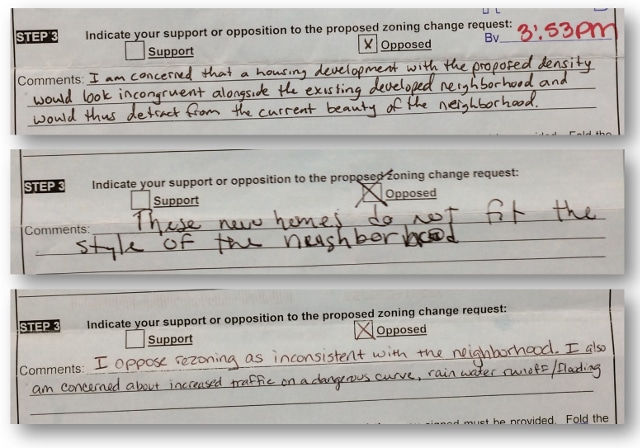 STEP 3 Indicate your support or opposition to the proposed zoning change request:
Support X Opposed By 3:53pm
Comments: I am concerned that a housing development with the proposed density
would look incongruent alongside the existing developed neighborhood and
would thus detract from the current beauty of the neighborhood.
Fold the
STEP 3 Indicate your support or opposition to the proposed zoning change request:
Support X Opposed
Comments: These new homes do not fit the
style of the neighborhood
STEP 3 Indicate your support or opposition to the proposed zoning change request:
Support X Opposed
Comments: I oppose rezoning as inconsistent with the neighborhood. I also
am concerned about increased traffic on a dangerous curve, rain water runoff/flooding
must be provided. Fold the